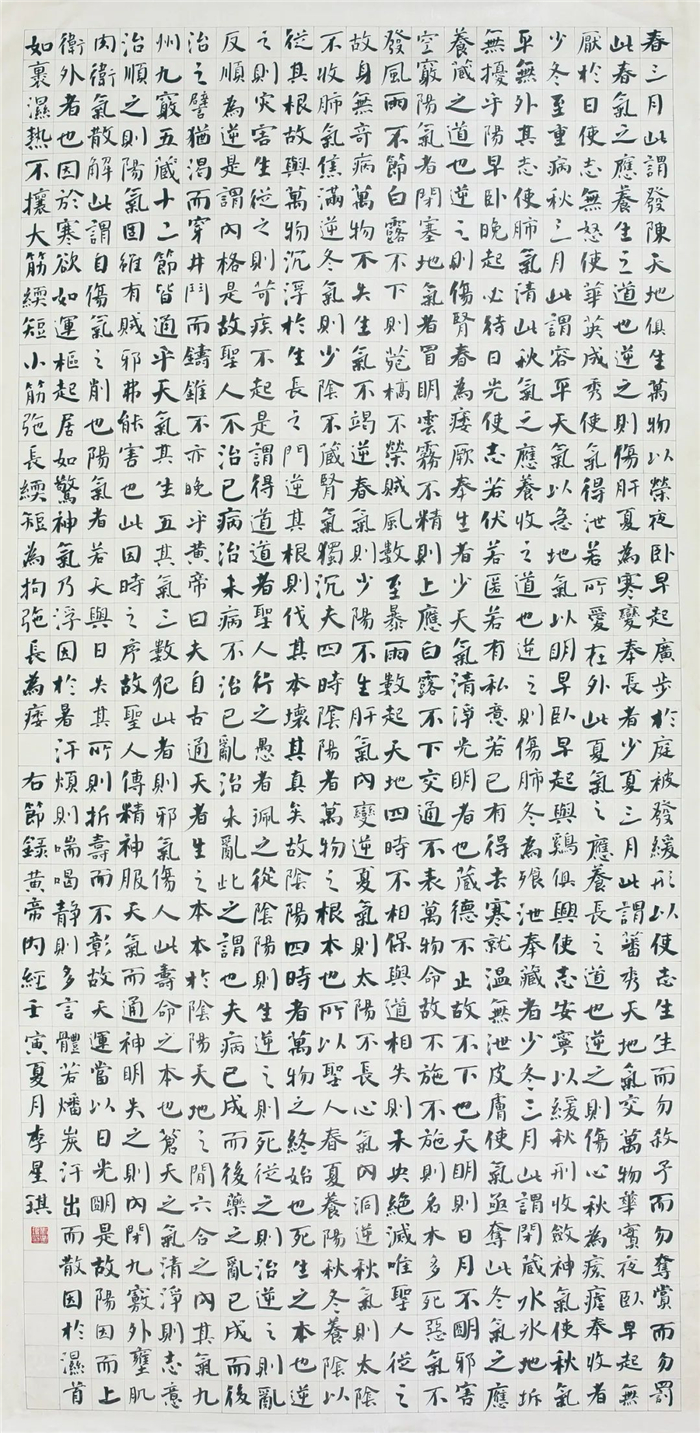 春三月此謂發陳天地俱生萬物以榮夜卧早起廣步於庭被發緩形以使志生生而勿殺予而勿奪賞而勿罰
此春氣之應養生之道也逆之則傷肝夏為寒變奉長者少夏三月此謂蕃秀天地氣交萬物華實夜卧早起無
厭於日使志無怒使華英成秀使氣得泄若所愛在外此夏氣之應養長之道也逆之則傷心秋為痎瘧奉收者
少冬至重病秋三月此謂容平天氣以急地氣以明早卧早起與鷄俱興使志安寧以緩秋刑收斂神氣使秋氣
平無外其志使肺氣清此秋氣之應養收之道也逆之則傷肺冬為飱泄奉藏者少冬三月此謂閉藏水冰地坼
無擾乎陽早卧晚起必待日光使志若伏若匿若有私意若已有得去寒就温無泄皮膚使氣亟奪此冬氣之應
養藏之道也逆之則傷腎春為痿厥奉生者少天氣清淨光明者也藏德不止故不下也天明則日月不明邪害
空竅陽氣者閉塞地氣者冒明雲霧不精則上應白露不下交通不表萬物命故不施不施則名木多死惡氣不
發風雨不節白露不下則菀槁不榮賊風數至暴雨數起天地四時不相保與道相失則未央絕滅唯聖人從之
故身無奇病萬物不失生氣不竭逆春氣則少陽不生肝氣內變逆夏氣則太陽不長心氣內洞逆秋氣則太陰
不收肺氣焦滿逆冬氣則少陰不藏腎氣獨沉夫四時陰陽者萬物之根本也所以聖人春夏養陽秋冬養陰以
從其根故與萬物沉浮於生長之門逆其根則伐其本壞其真矣故陰陽四時者萬物之終始也死生之本也逆
之則災害生從之則苛疾不起是謂得道道者聖人行之愚者佩之從陰陽則生逆之則死從之則治逆之則亂
反順為逆是謂內格是故聖人不治已病治未病不治已亂治未亂此之謂也夫病已成而後藥之亂已成而後
治之譬猶渴而穿井鬥而鑄錐不亦晚乎黃帝曰夫自古通天者生之本本於陰陽天地之間六合之內其氣九
州九竅五藏十二節皆通乎天氣其生五其氣三數犯此者則邪氣傷人此壽命之本也蒼天之氣清淨則志意
治順之則陽氣固雖有賊邪弗能害也此因時之序故聖人傳精神服天氣而通神明失之則內閉九竅外壅肌
肉衛氣散解此謂自傷氣之削也陽氣者若天與日失其所則折壽而不彰故天運當以日光明是故陽因而上
衛外者也因於寒欲如運樞起居如驚神氣乃浮因於暑汗煩則喘喝靜則多言體若燔炭汗出而散因於濕首
如裹濕熱不攘大筋緛短小筋弛長緛短為拘弛長為痿 右節錄黃帝內經壬寅夏月李星琪